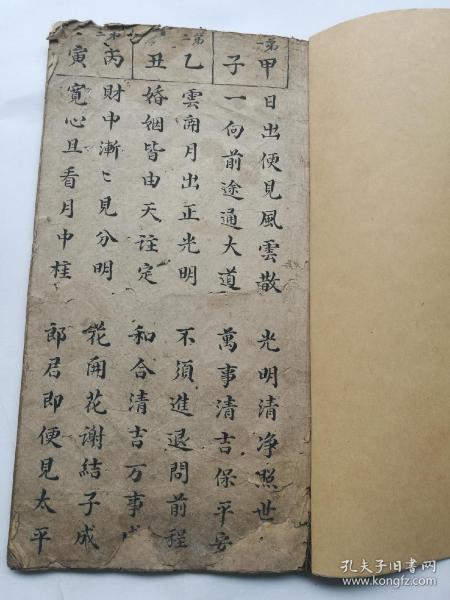 第一
甲子
日出便見風雲散 光明清净照世
一向前途通大道 萬事清吉保平安
第二
乙丑
雲開月出正光明 不須進退問前程
婚姻皆由天註定 和合清吉万事成
丙寅
財中漸〻見分明 花開花謝結子成
寬心且看月中桂 郎君即便見太平
孔夫子旧书网
www.kongfz.com